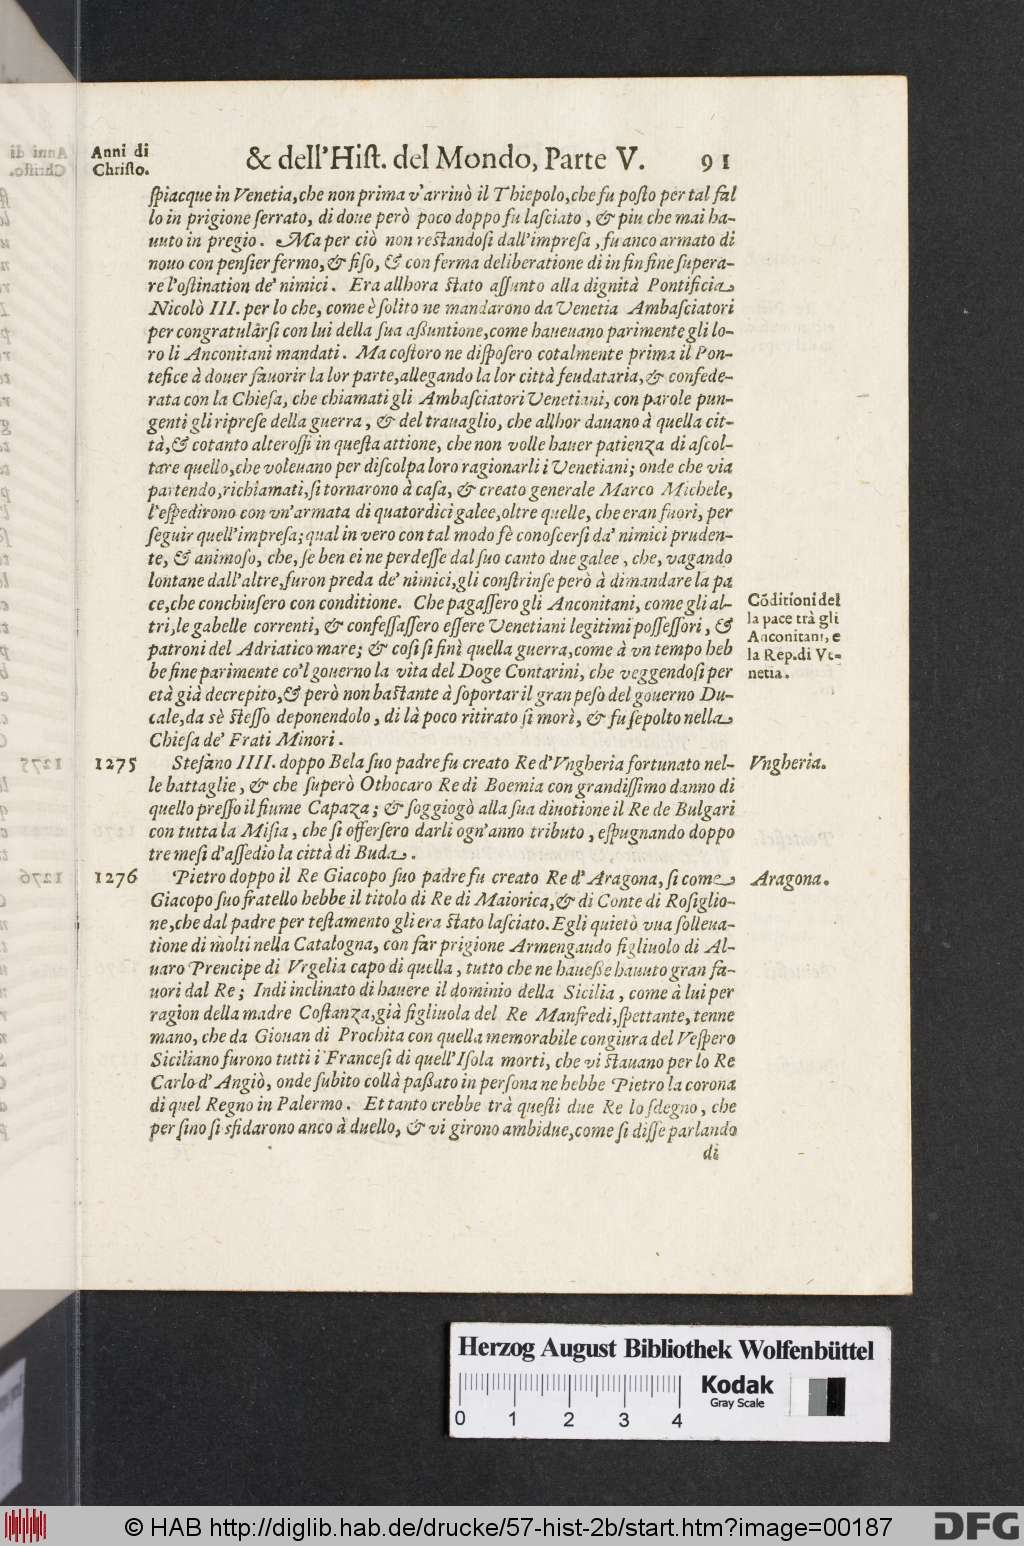 Anni di
Christo.
& dell'Hist. del Mondo, Parte V. 91
spiacque in Venetia, che non prima v'arriuò il Thiepolo, che fu posto per tal fal
lo in prigione serrato, di doue però poco doppo fu lasciato, & piu che mai ha-
uuto in pregio. Ma per ciò non restandosi dall'impresa, fu anco armato di
nouo con pensier fermo, & fiso, & con ferma deliberatione di in fin fine supera-
re l'ostination de' nimici. Era allhora stato assunto alla dignità Pontificia
Nicolò III. per lo che, come è solito ne mandarono da Venetia Ambasciatori
per congratularsi con lui della sua assuntione, come haueuano parimente gli lo-
ro li Anconitani mandati. Ma costoro ne disposero cotalmente prima il Pon-
tefice à douer fauorir la lor parte, allegando la lor città feudataria, & confede-
rata con la Chiesa, che chiamati gli Ambasciatori Venetiani, con parole pun-
genti gli riprese della guerra, & del trauaglio, che allhor dauano à quella cit-
tà, & cotanto alterossi in questa attione, che non volle hauer patienza di ascol-
tare quello, che voleuano per discolpa loro ragionarli i Venetiani; onde che via
partendo, richiamati, si tornarono à casa, & creato generale Marco Michele,
l'espedirono con vn'armata di quatordici galee, oltre quelle, che eran fuori, per
seguir quell'impresa; qual in vero con tal modo fè conoscersi da' nimici pruden-
te, & animoso, che, se ben ei ne perdesse dal suo canto due galee, che, vagando
lontane dall'altre, furon preda de' nimici, gli constrinse però à dimandare la pa
ce, che conchiusero con conditione. Che pagassero gli Anconitani, come gli al-
tri, le gabelle correnti, & confessassero essere Venetiani legitimi possessori, &
patroni del Adriatico mare; & cosi si finì quella guerra, come à vn tempo heb
be fine parimente co'l gouerno la vita del Doge Contarini, che veggendosi per
età già decrepito, & però non bastante à soportar il gran peso del gouerno Du-
cale, da sè stesso deponendolo, di là poco ritirato si morì, & fu sepolto nella
Chiesa de' Frati Minori.
Cōditioni del
la pace trà gli
Anconitani, e
la Rep. di Ve-
netia.
1275 Stefano IIII. doppo Bela suo padre fu creato Re d'Vngheria fortunato nel- Vngheria.
le battaglie, & che superò Othocaro Re di Boemia con grandissimo danno di
quello presso il fiume Capaza; & soggiogò alla sua diuotione il Re de Bulgari
con tutta la Misia, che si offersero darli ogn'anno tributo, espugnando doppo
tre mesi d'assedio la città di Buda.
1276 Pietro doppo il Re Giacopo suo padre fu creato Re d'Aragona, si come Aragona.
Giacopo suo fratello hebbe il titolo di Re di Maiorica, & di Conte di Rosiglio-
ne, che dal padre per testamento gli era stato lasciato. Egli quietò vna solleua-
tione di molti nella Catalogna, con far prigione Armengaudo figliuolo di Al-
uaro Prencipe di Vrgelia capo di quella, tutto che ne hauesse hauuto gran fa-
uori dal Re; Indi inclinato di hauere il dominio della Sicilia, come à lui per
ragion della madre Costanza, già figliuola del Re Manfredi, spettante, tenne
mano, che da Giouan di Prochita con quella memorabile congiura del Vespero
Siciliano furono tutti i Francesi di quell'Isola morti, che vi stauano per lo Re
Carlo d'Angiò, onde subito collà passato in persona ne hebbe Pietro la corona
di quel Regno in Palermo. Et tanto crebbe trà questi due Re lo sdegno, che
per sino si sfidarono anco à duello, & vi girono ambidue, come si disse parlando
di
Herzog August Bibliothek Wolfenbüttel
Kodak
Gray Scale
0 1 2 3 4
© HAB http://diglib.hab.de/drucke/57-hist-2b/start.htm?image=00187
DFG